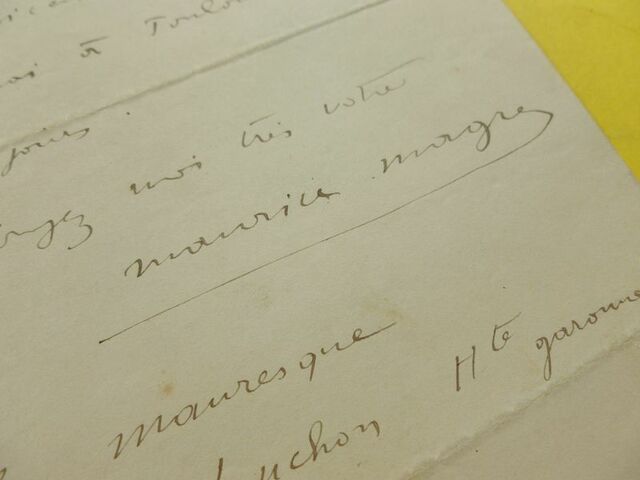 à Toulou
jours.
moi très votre
maurice magre
mauresque
luchon Hte garonne